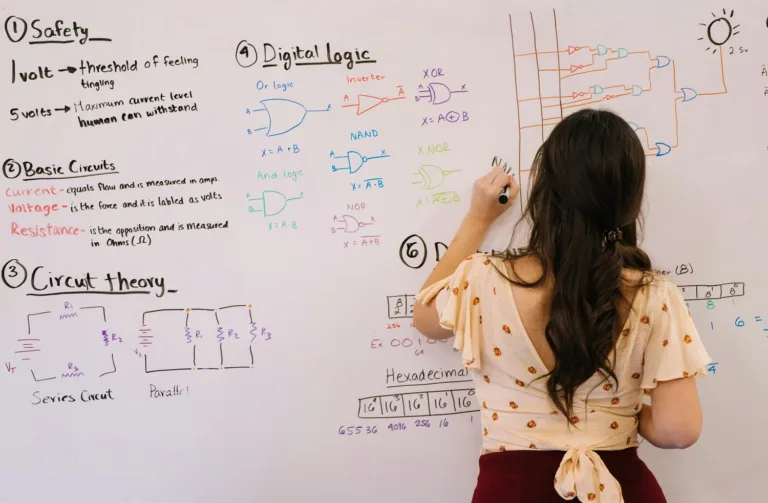 ① Safety
1 volt → threshold of feeling
tingling
5 volts → Maximum current level
human can withstand
② Basic Circuits
Current - equals flow and is measured in amps.
Voltage - is the force and it is labled as volts
Resistance - is the opposition and is measured
in Ohms (Ω)
③ Circut theory
R₁
R₂
R₃
VT
Series Circut
R₁ R₂ R₃
Parallel
④ Digital logic
Or logic
A
B
X
X = A + B
And logic
A
B
X = A · B
Inverter
A
A̅
NAND
A
B
X
X = A̅·̅B̅
NOR
A
B
X
X = A̅+̅B̅
XOR
A
B
X
X = A ⊕ B
X NOR
X = A̅⊕̅B̅
2.5v
(8)
8¹ 8⁰
8 1
256
Ex 001
64
1 6 =
4
Hexadecimal
16⁴ 16³ 16² 16¹ 16⁰
65536 4096 256 16 1